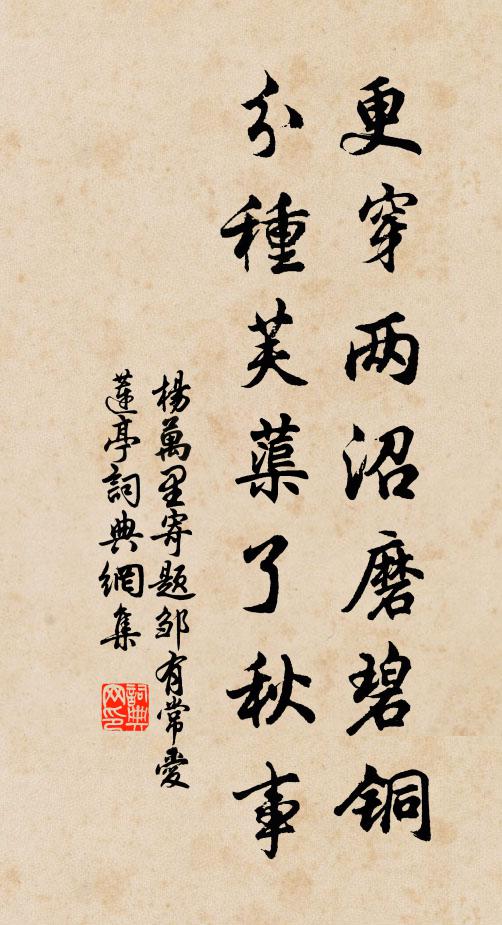 更穿两沼磨碧铜
分種芙蕖了秋事
楊萬里寄题邹有常愛
蓮亭詞典網集
詞典
网印